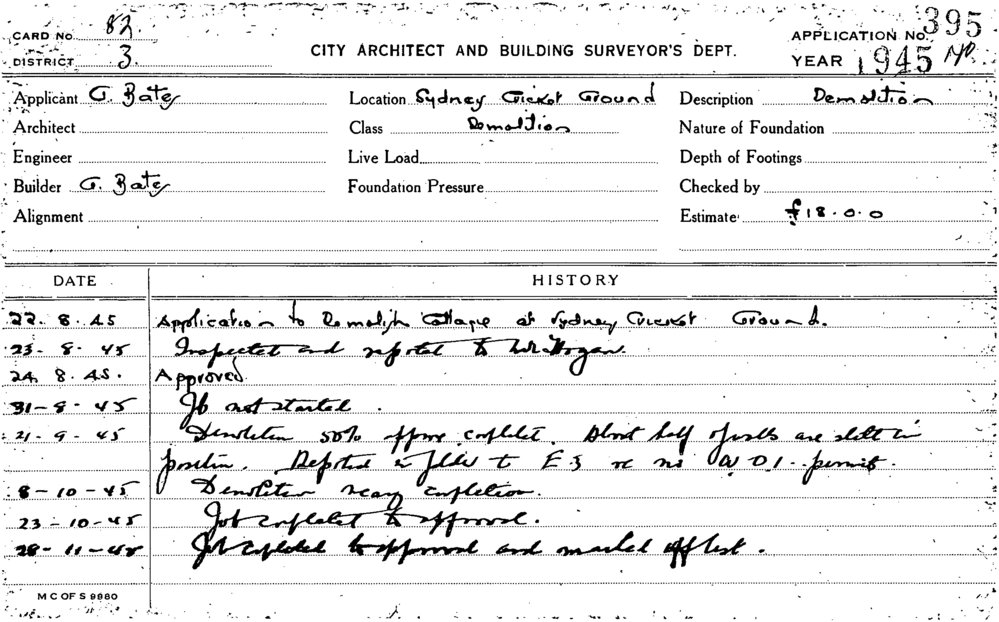 CARD NO. 82.
DISTRICT 3.
CITY ARCHITECT AND BUILDING SURVEYOR'S DEPT.
APPLICATION NO. 395
YEAR 1945
Applicant G. Bates
Location Sydney Cricket Ground
Description Demolition
Architect
Class Demolition
Nature of Foundation
Engineer
Live Load
Depth of Footings
Builder G. Bates
Foundation Pressure
Checked by
Alignment
Estimate £18.0.0
DATE HISTORY
22.8.45 Application to Demolish Cottage at Sydney Cricket Ground.
23-8-45 Inspected and reported to Hogan.
24.8.45. Approved
31-8-45 Job not started.
21-9-45 Demolition 50% approx complete. About half of walls are still in
position. Reported in folder to E.S re no permit.
8-10-45 Demolition near completion.
23-10-45 Job completed to approval.
28-11-45 Job completed to approval and marked off list.
M C OF S 9880